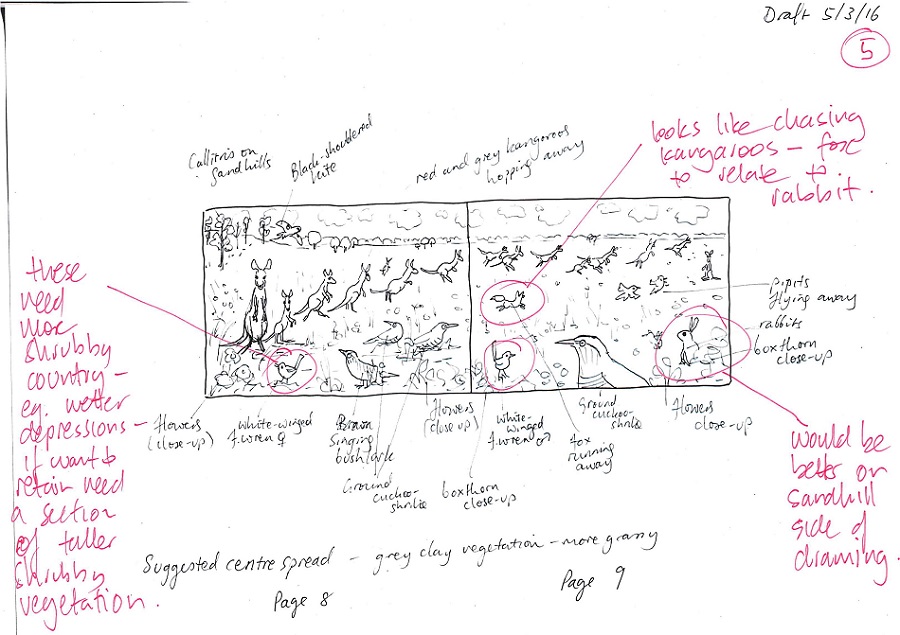 Draft 5/3/16
5
Callitris on
Sandhills
Black-shouldered
kite
red and grey kangaroos
hopping away
looks like chasing
kangaroos – fox
to relate to
rabbit.
these
need
more
shrubby
country –
eg. wetter
depressions –
if want to
retain need
a section
of taller
shrubby
vegetation.
pipits
flying away
rabbits
boxthorn
close-up
Flowers
(close-up)
white-winged
f.wren ♀
Brown
Singing
bushlark
Ground
cuckoo-
shrike
Flowers
(close-up)
boxthorn
close-up
white-
winged
f.wren ♂
fox
running
away
Ground
cuckoo-
shrike
Flowers
close-up
would be
better on
sandhill
side of
drawing.
Suggested centre spread – grey clay vegetation – more grassy
Page 8
Page 9